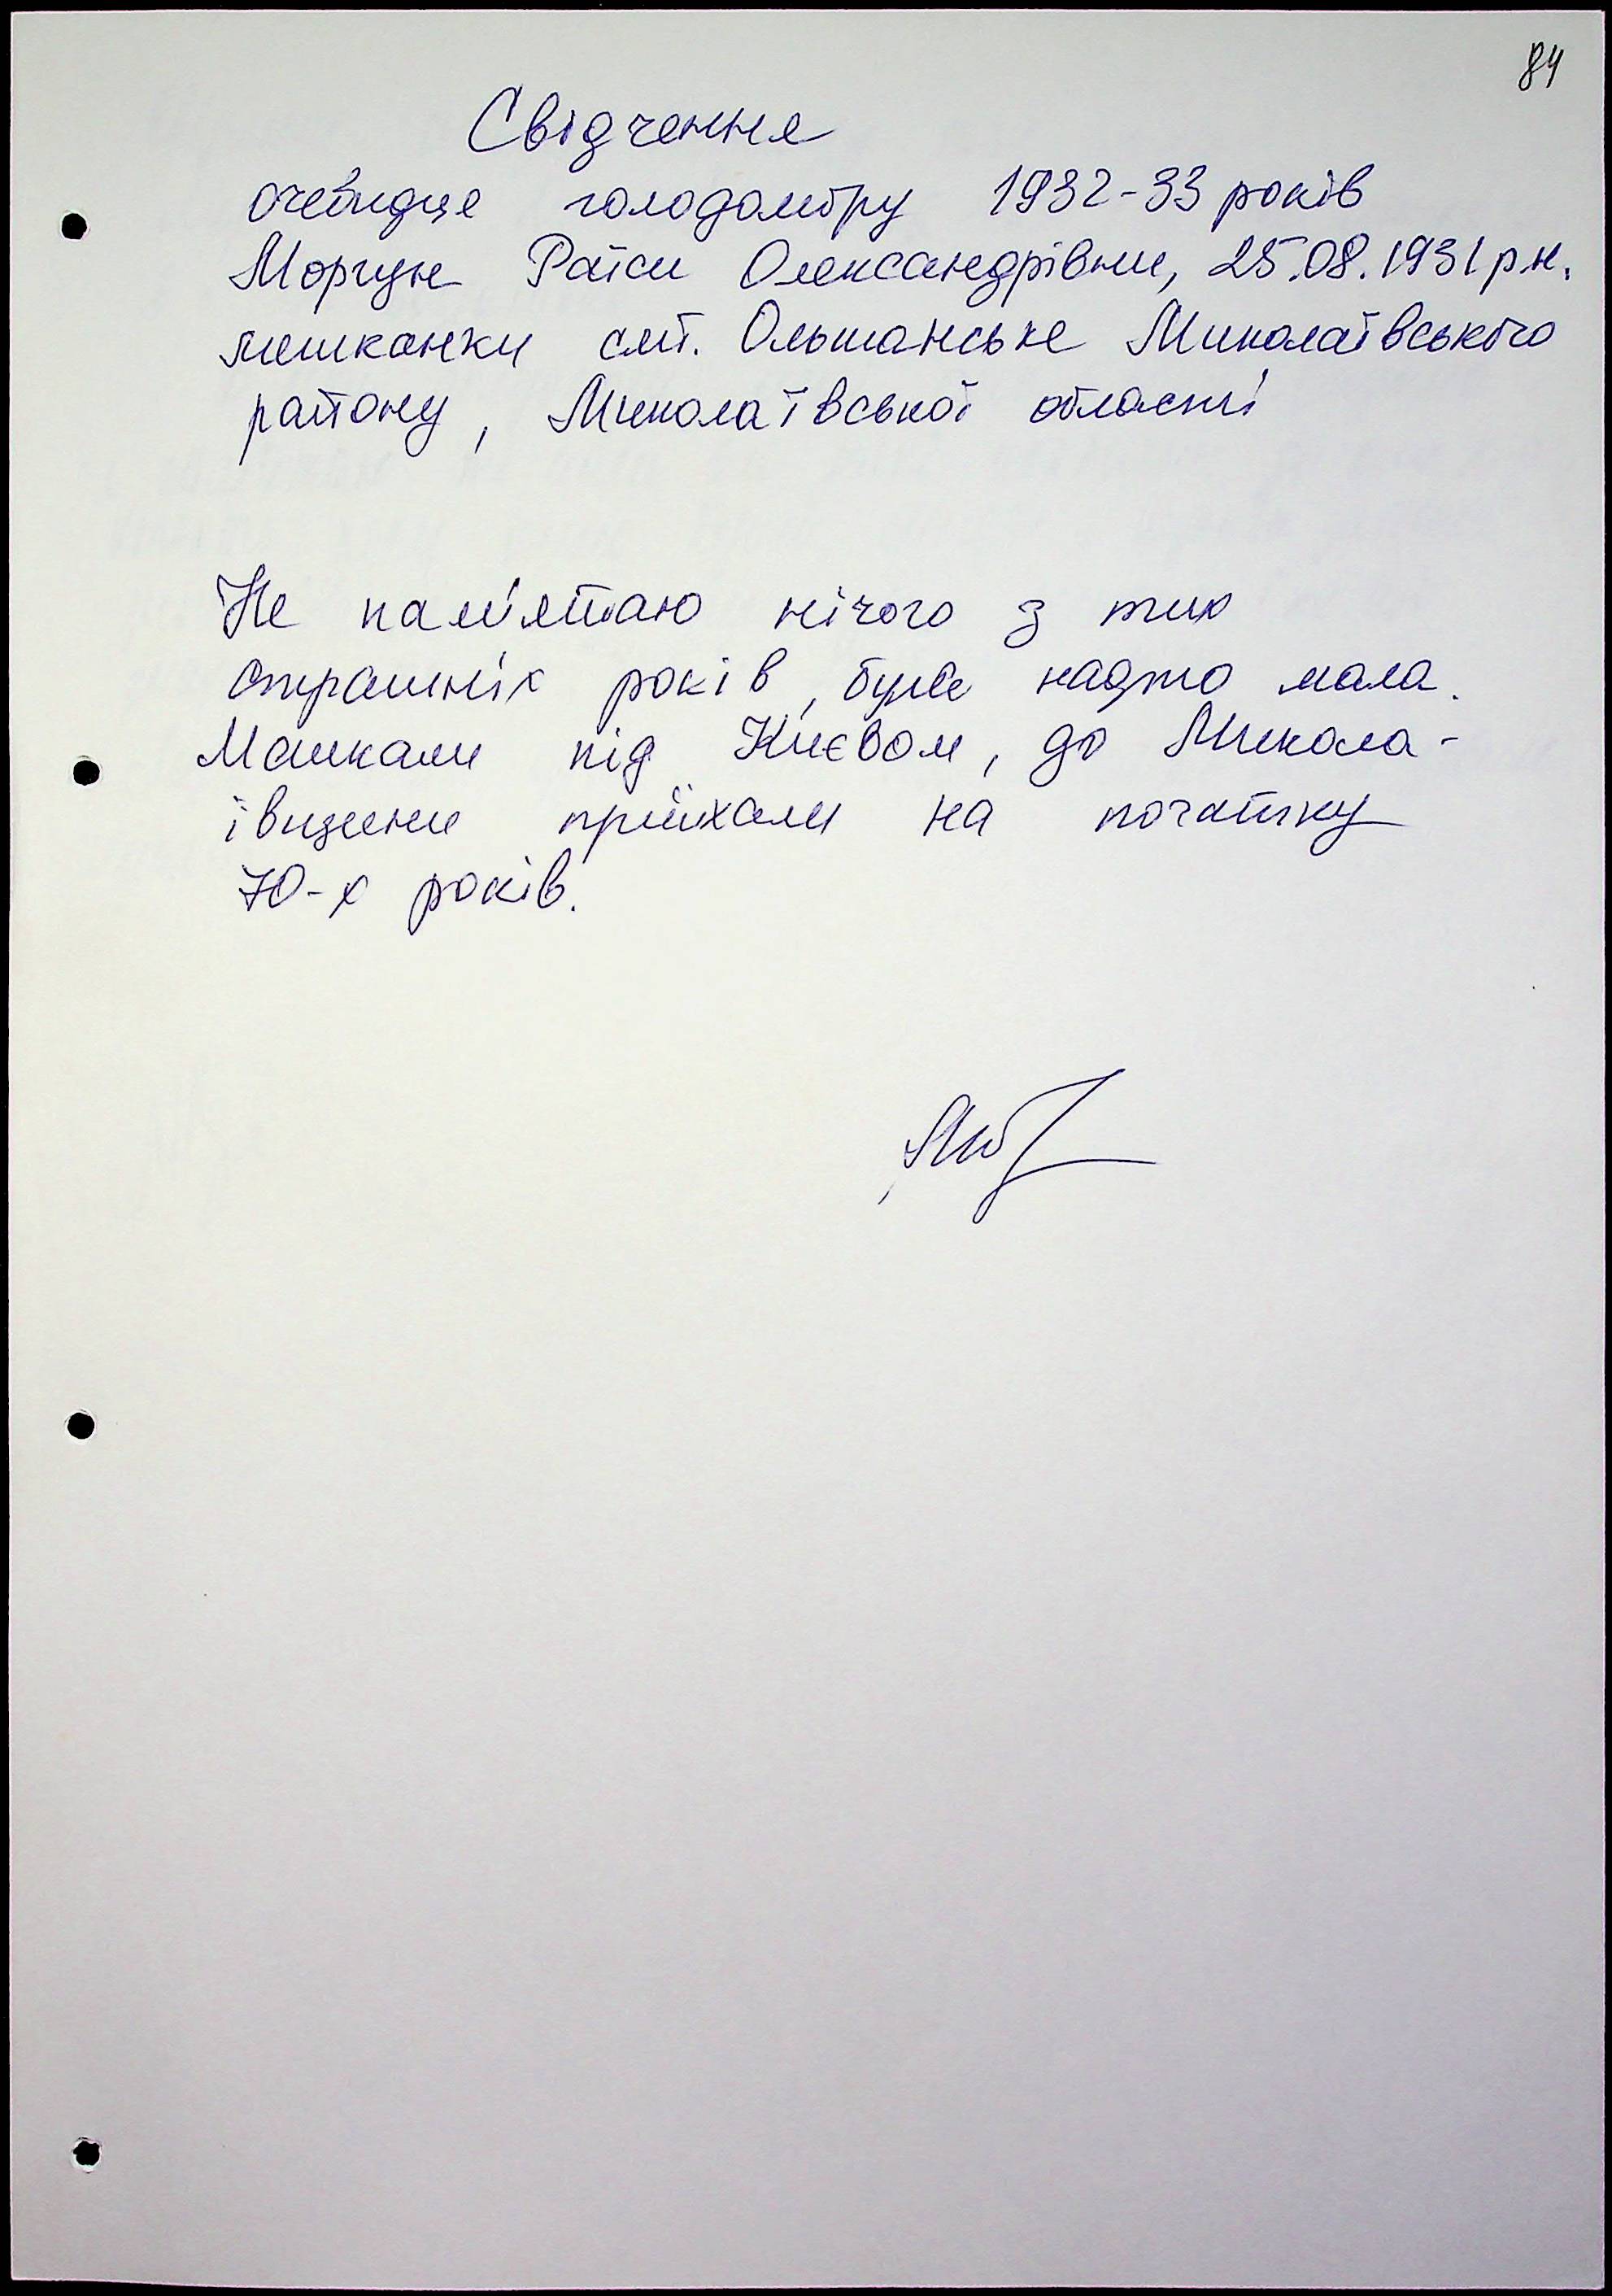 84
Свідчення
очевидця голодомору 1932-33 років
Моргун Раїси Олександрівни, 25.08.1931 р.н.
мешканки смт. Ольшанське Миколаївського
району, Миколаївської області
Не пам'ятаю нічого з тих
страшніх років, була надто мала.
Машкали під Києвом, до Микола-
ївщини приїхали на початку
70-х років.